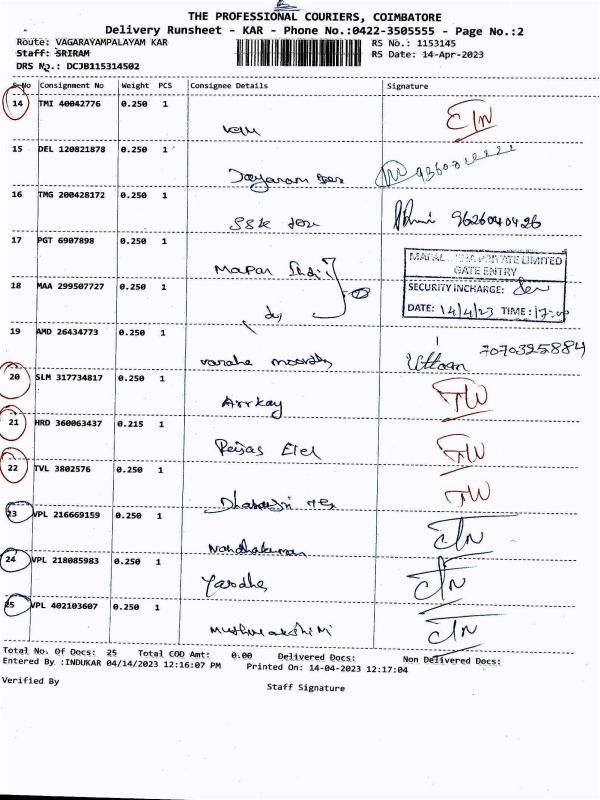 THE PROFESSIONAL COURIERS, COIMBATORE
Delivery Runsheet - KAR - Phone No.:0422-3505555 - Page No.:2
Route: VAGARAYAMPALAYAM KAR RS No.: 1153145
Staff: SRIRAM RS Date: 14-Apr-2023
DRS No.: DCJB115314502
S.No Consignment No Weight PCS Consignee Details Signature
14 TMI 40042776 0.250 1
15 DEL 120821878 0.250 1
Jayaram
16 TMG 200428172 0.250 1
SSK 9626040426
17 PGT 6907898 0.250 1
Mapal
GATE ENTRY
18 MAA 299507727 0.250 1 SECURITY INCHARGE:
do DATE: 14/4/23 TIME:
19 AMD 26434773 0.250 1
varahe 7070325884
20 SLM 317734817 0.250 1
Arrkay
21 HRD 360063437 0.215 1
22 TVL 3802576 0.250 1
23 VPL 216669159 0.250 1
Nandhakumar
24 VPL 218085983 0.250 1
Yasodha
25 VPL 402103607 0.250 1
Total No. Of Docs: 25 Total COD Amt: 0.00 Delivered Docs: Non Delivered Docs:
Entered By :INDUKAR 04/14/2023 12:16:07 PM Printed On: 14-04-2023 12:17:04
Verified By
Staff Signature